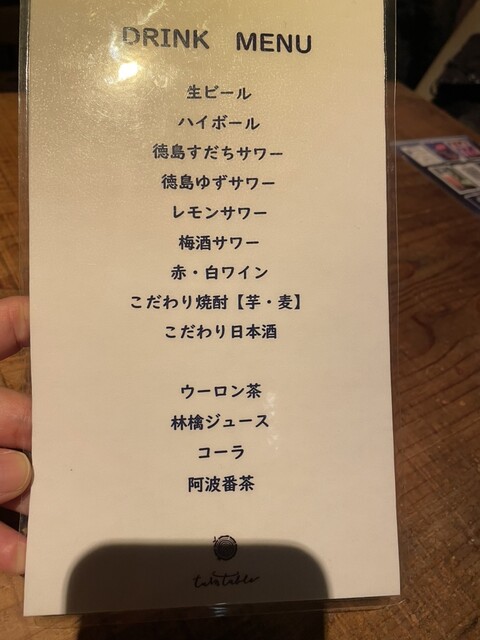 DRINK MENU
生ビール
ハイボール
徳島すだちサワー
徳島ゆずサワー
レモンサワー
梅酒サワー
赤・白ワイン
こだわり焼酎【芋・麦】
こだわり日本酒
ウーロン茶
林檎ジュース
コーラ
阿波番茶